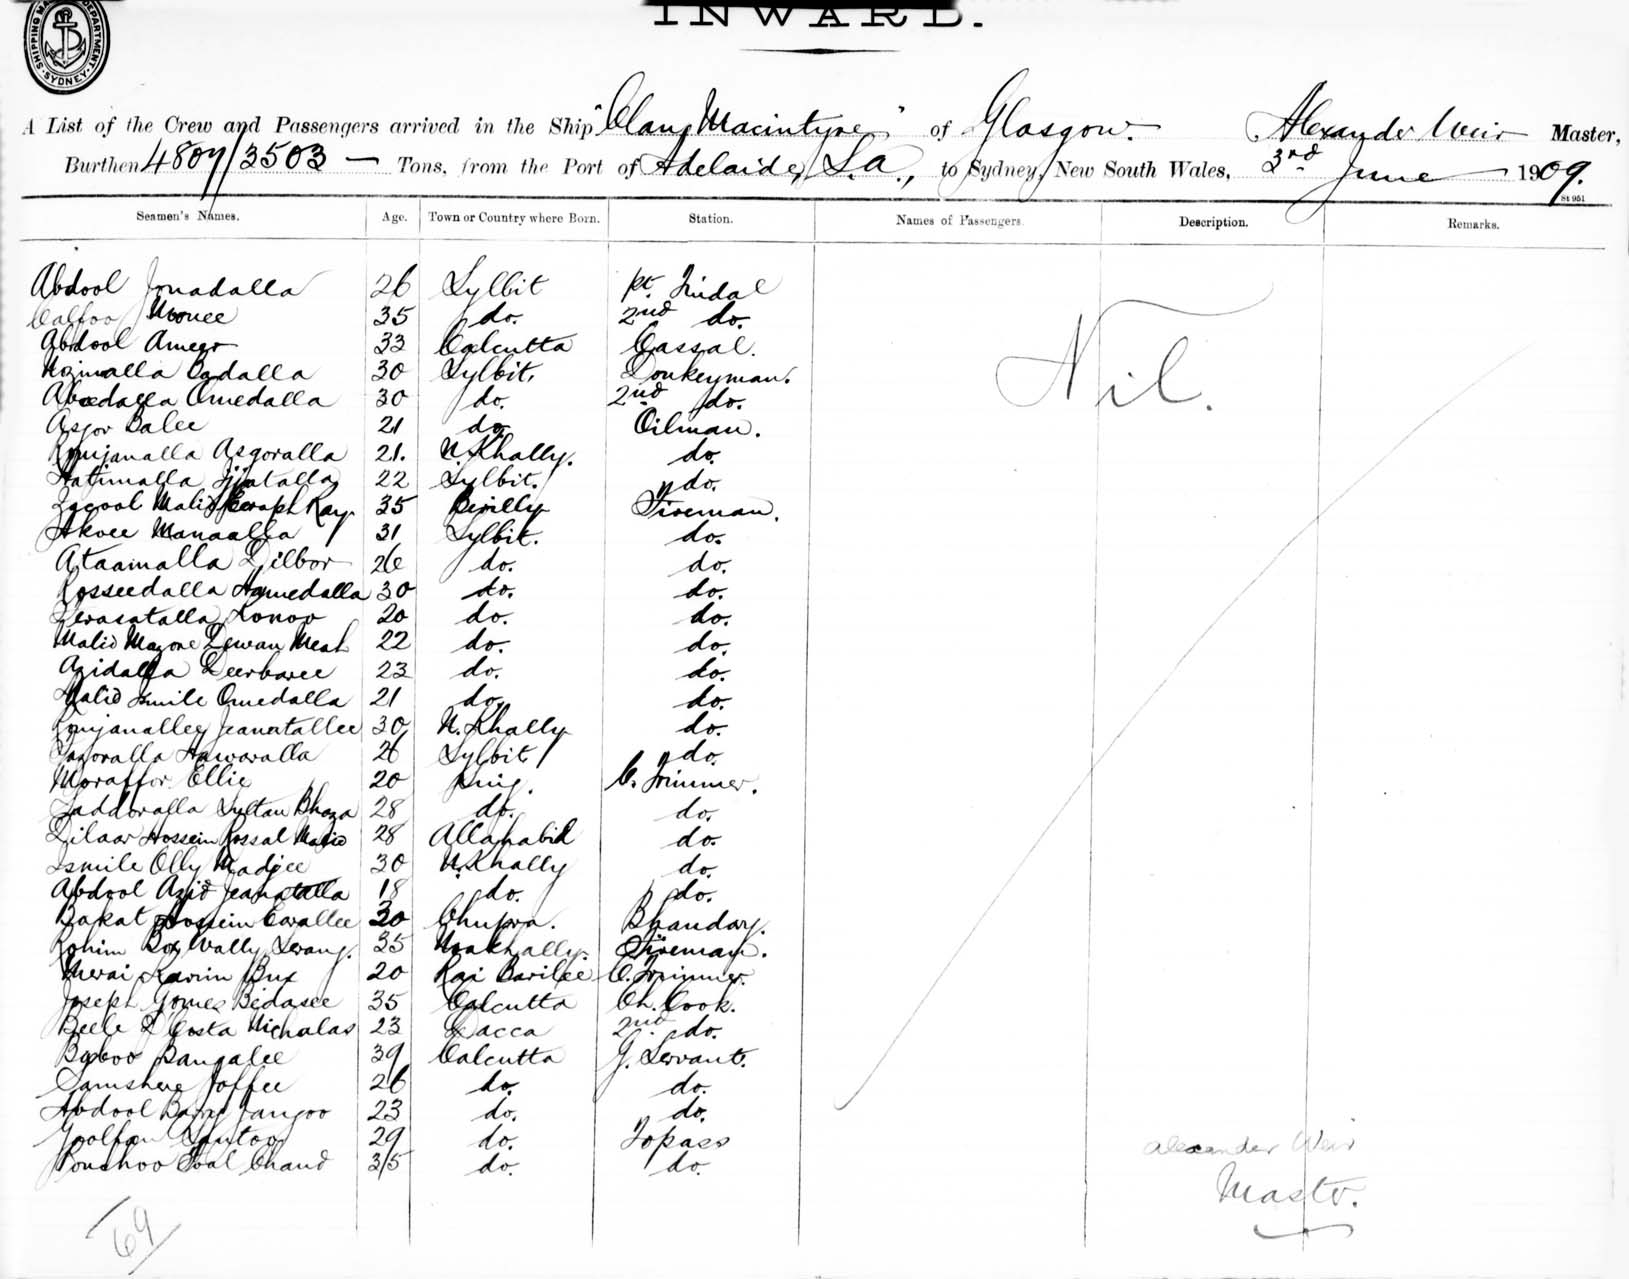 SHIPPING MA DEPARTMENT. SYDNEY.
INWARD.
A List of the Crew and Passengers arrived in the Ship "Clan Macintyre" of Glasgow. Alexander Weir Master,
Burthen 4807/3503 — Tons, from the Port of Adelaide, S.A., to Sydney, New South Wales, 3rd June 1909.
St 951
Seamen's Names. Age. Town or Country where Born. Station. Names of Passengers. Description. Remarks.
Abdool Jonadalla 26 Sylbit 1st Tindal
Nil.
Calfoo Monee 35 do. 2nd do.
Abdool 33 Calcutta Cassal.
Odalla 30 Sylbit. Donkeyman.
Omedalla 30 do. 2nd do.
Asjor Balee 21 do. Oilman.
Romjanalla Asgoralla 21. N. Khally. do.
Hatimalla 22 Sylbit. do.
Malid Ray 35 Fireman.
Manaalla 31 Sylbit. do.
Ataamalla Dilbor 26 do. do.
Rosseedalla Hamedalla 30 do. do.
Serasatalla Konoo 20 do. do.
Malid Mazone Dewan Meah 22 do. do.
Azidalla Deerbaree 23 do. do.
Malid Ismile Omedalla 21 do. do.
Romjanallee Jeanatallee 30 N. Khally do.
Hawaralla 26 Sylbit do.
Moraffor Ellie 20 C. Trimmer.
Saddoralla Sultan Bhaza 28 do. do.
Dilaar Hossein Rossal Malid 28 Allahabid do.
Ismile Olly Madjee 30 N. Khally do.
Abdool Azid Jeanatalla 18 do. do.
Bakat Hossein Earallee 30 Chupra. Bhandary.
Rohim Box Wally Serang. 35 Noakhally. Fireman.
Merai Karim Bux 20 Rai Barilee C. Trimmer.
Joseph Gomes Bedasee 35 Calcutta Ch. Cook.
Beele D Costa Nicholas 23 Dacca 2nd do.
Baboo Bangalee 39 Calcutta G. Servant.
Samshere Joffee 26 do. do.
Abdool Jangoo 23 do. do.
29 do. Topass
Chand 35 do. do.
Alexander Weir
Master.
69